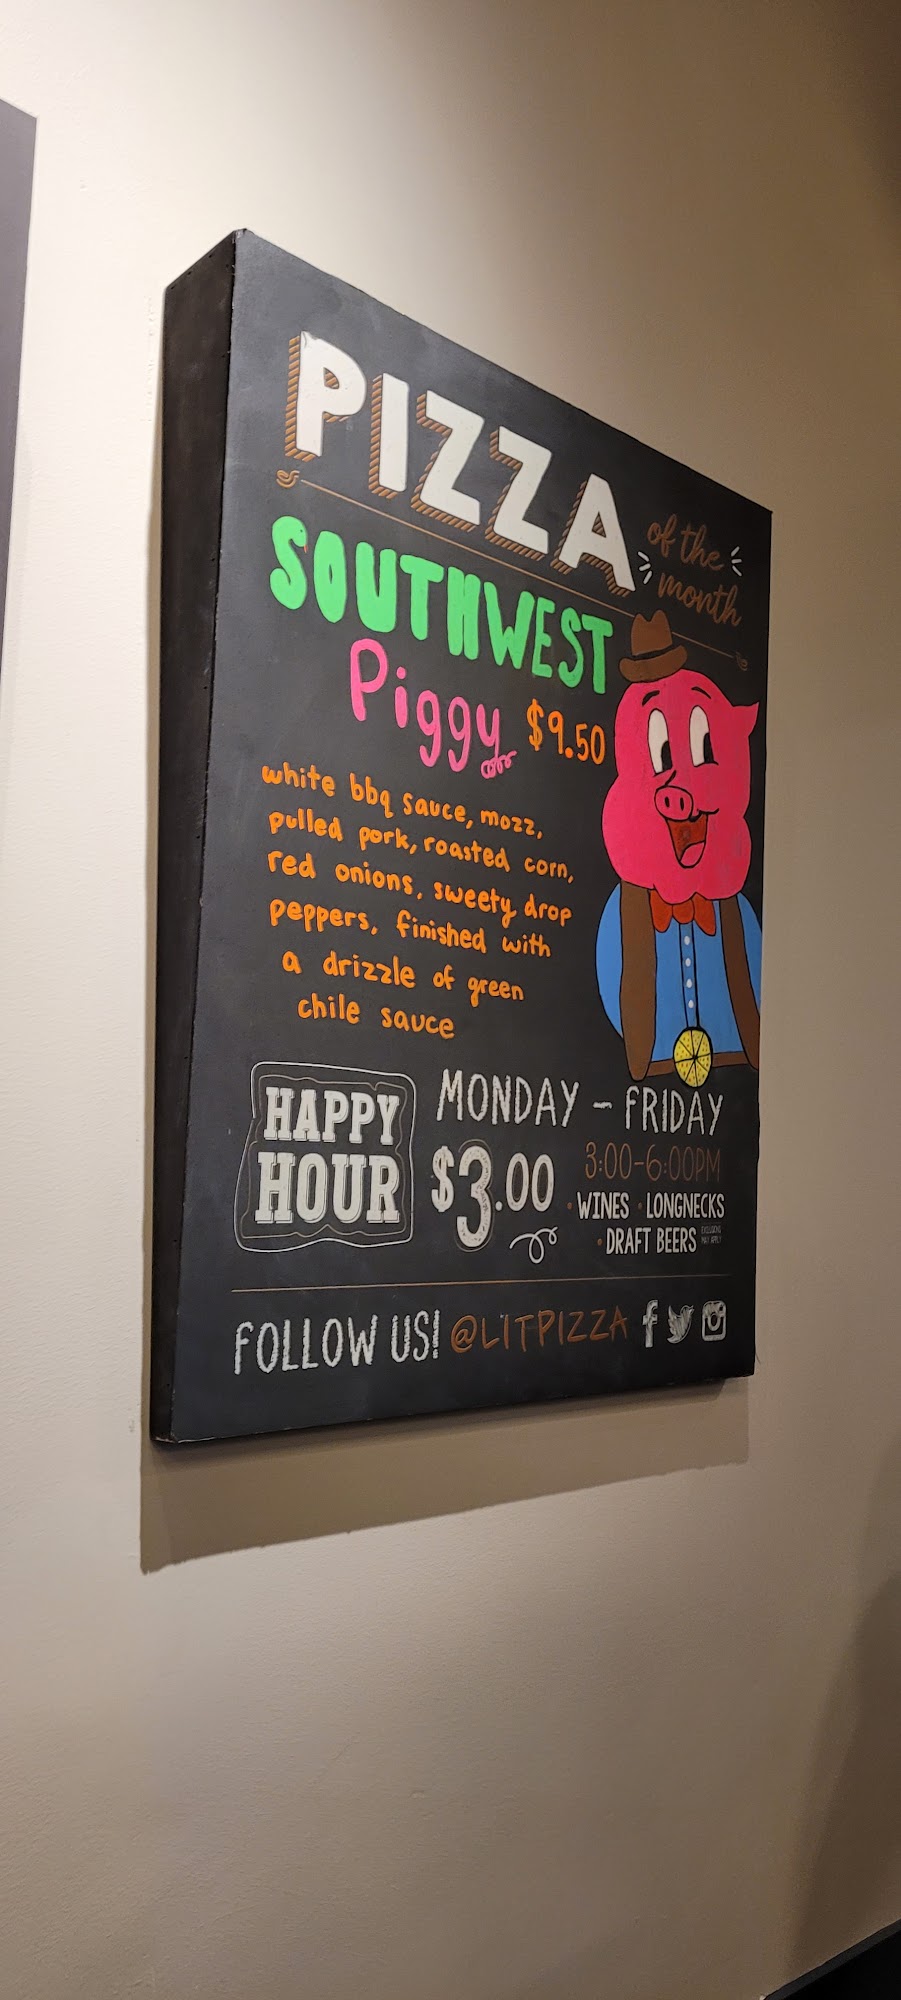 PIZZA
of the
month
SOUTHWEST
Piggy $9.50
white bbq sauce, mozz,
pulled pork, roasted corn,
red onions, sweety drop
peppers, finished with
a drizzle of green
chile sauce
HAPPY
HOUR
MONDAY - FRIDAY
$3.00
3:00-6:00PM
• WINES • LONGNECKS
• DRAFT BEERS
EXCLUSIONS
MAY APPLY
FOLLOW US! @LITPIZZA